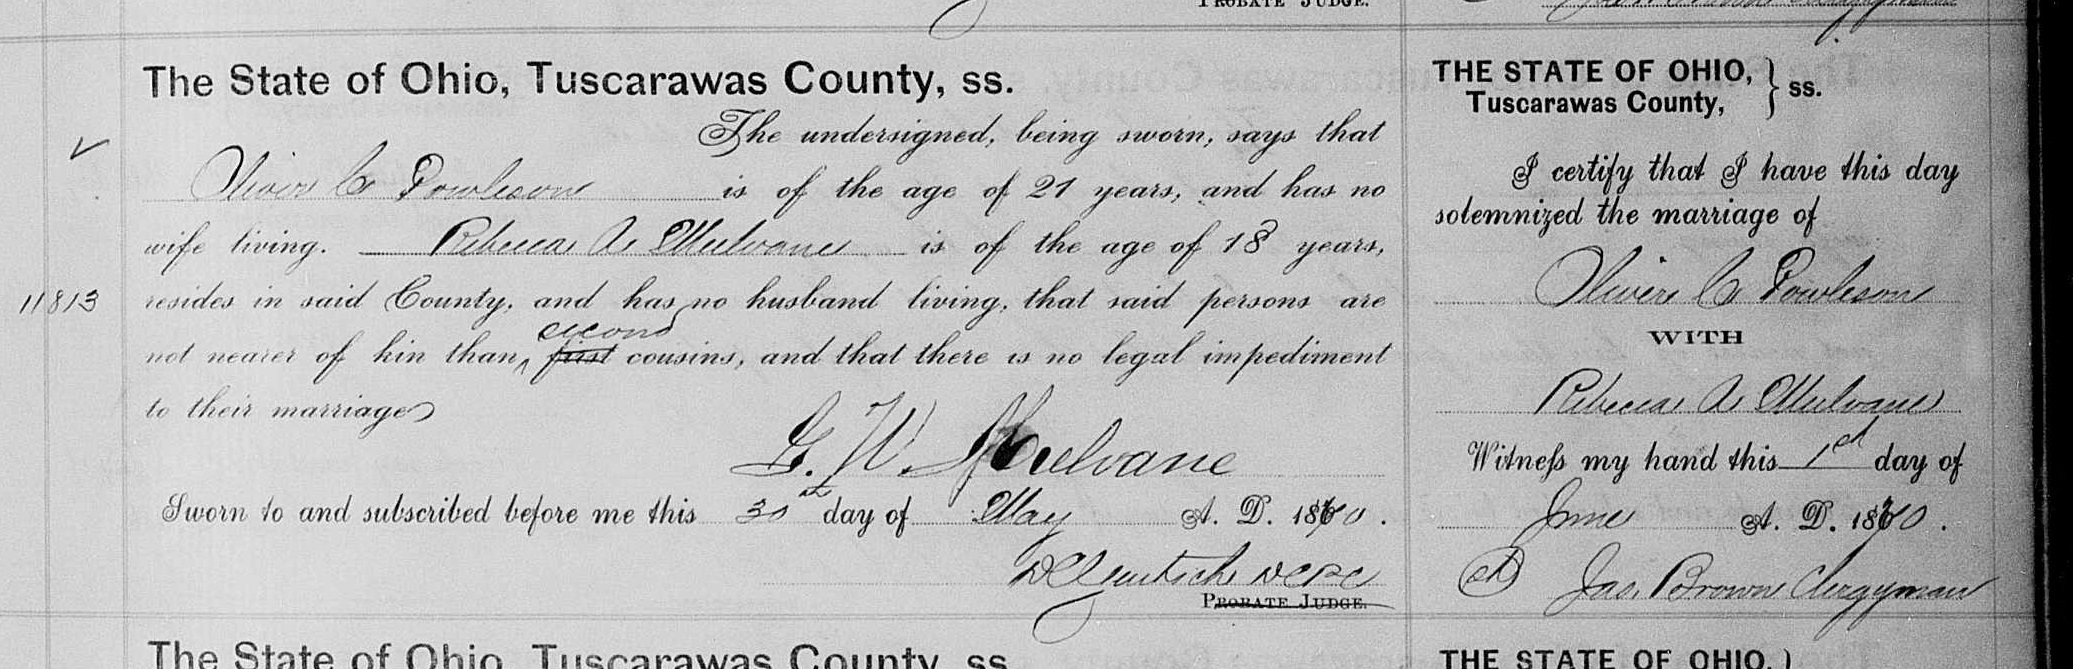 PROBATE JUDGE.
The State of Ohio, Tuscarawas County, ss.
The undersigned, being sworn, says that
Oliver C Powleson is of the age of 21 years, and has no
wife living. Rebecca A Mulvane is of the age of 18 years,
11813 resides in said County, and has no husband living, that said persons are
second
not nearer of kin than first cousins, and that there is no legal impediment
to their marriage
G. W. Mulvane
Sworn to and subscribed before me this 30th day of May A. D. 1860.
PROBATE JUDGE.
The State of Ohio, Tuscarawas County, ss
THE STATE OF OHIO,
Tuscarawas County, } ss.
I certify that I have this day
solemnized the marriage of
Oliver C Powleson
WITH
Rebecca A Mulvane
Witness my hand this 1st day of
June A. D. 1860.
Jas. Brown Clergyman
THE STATE OF OHIO, }